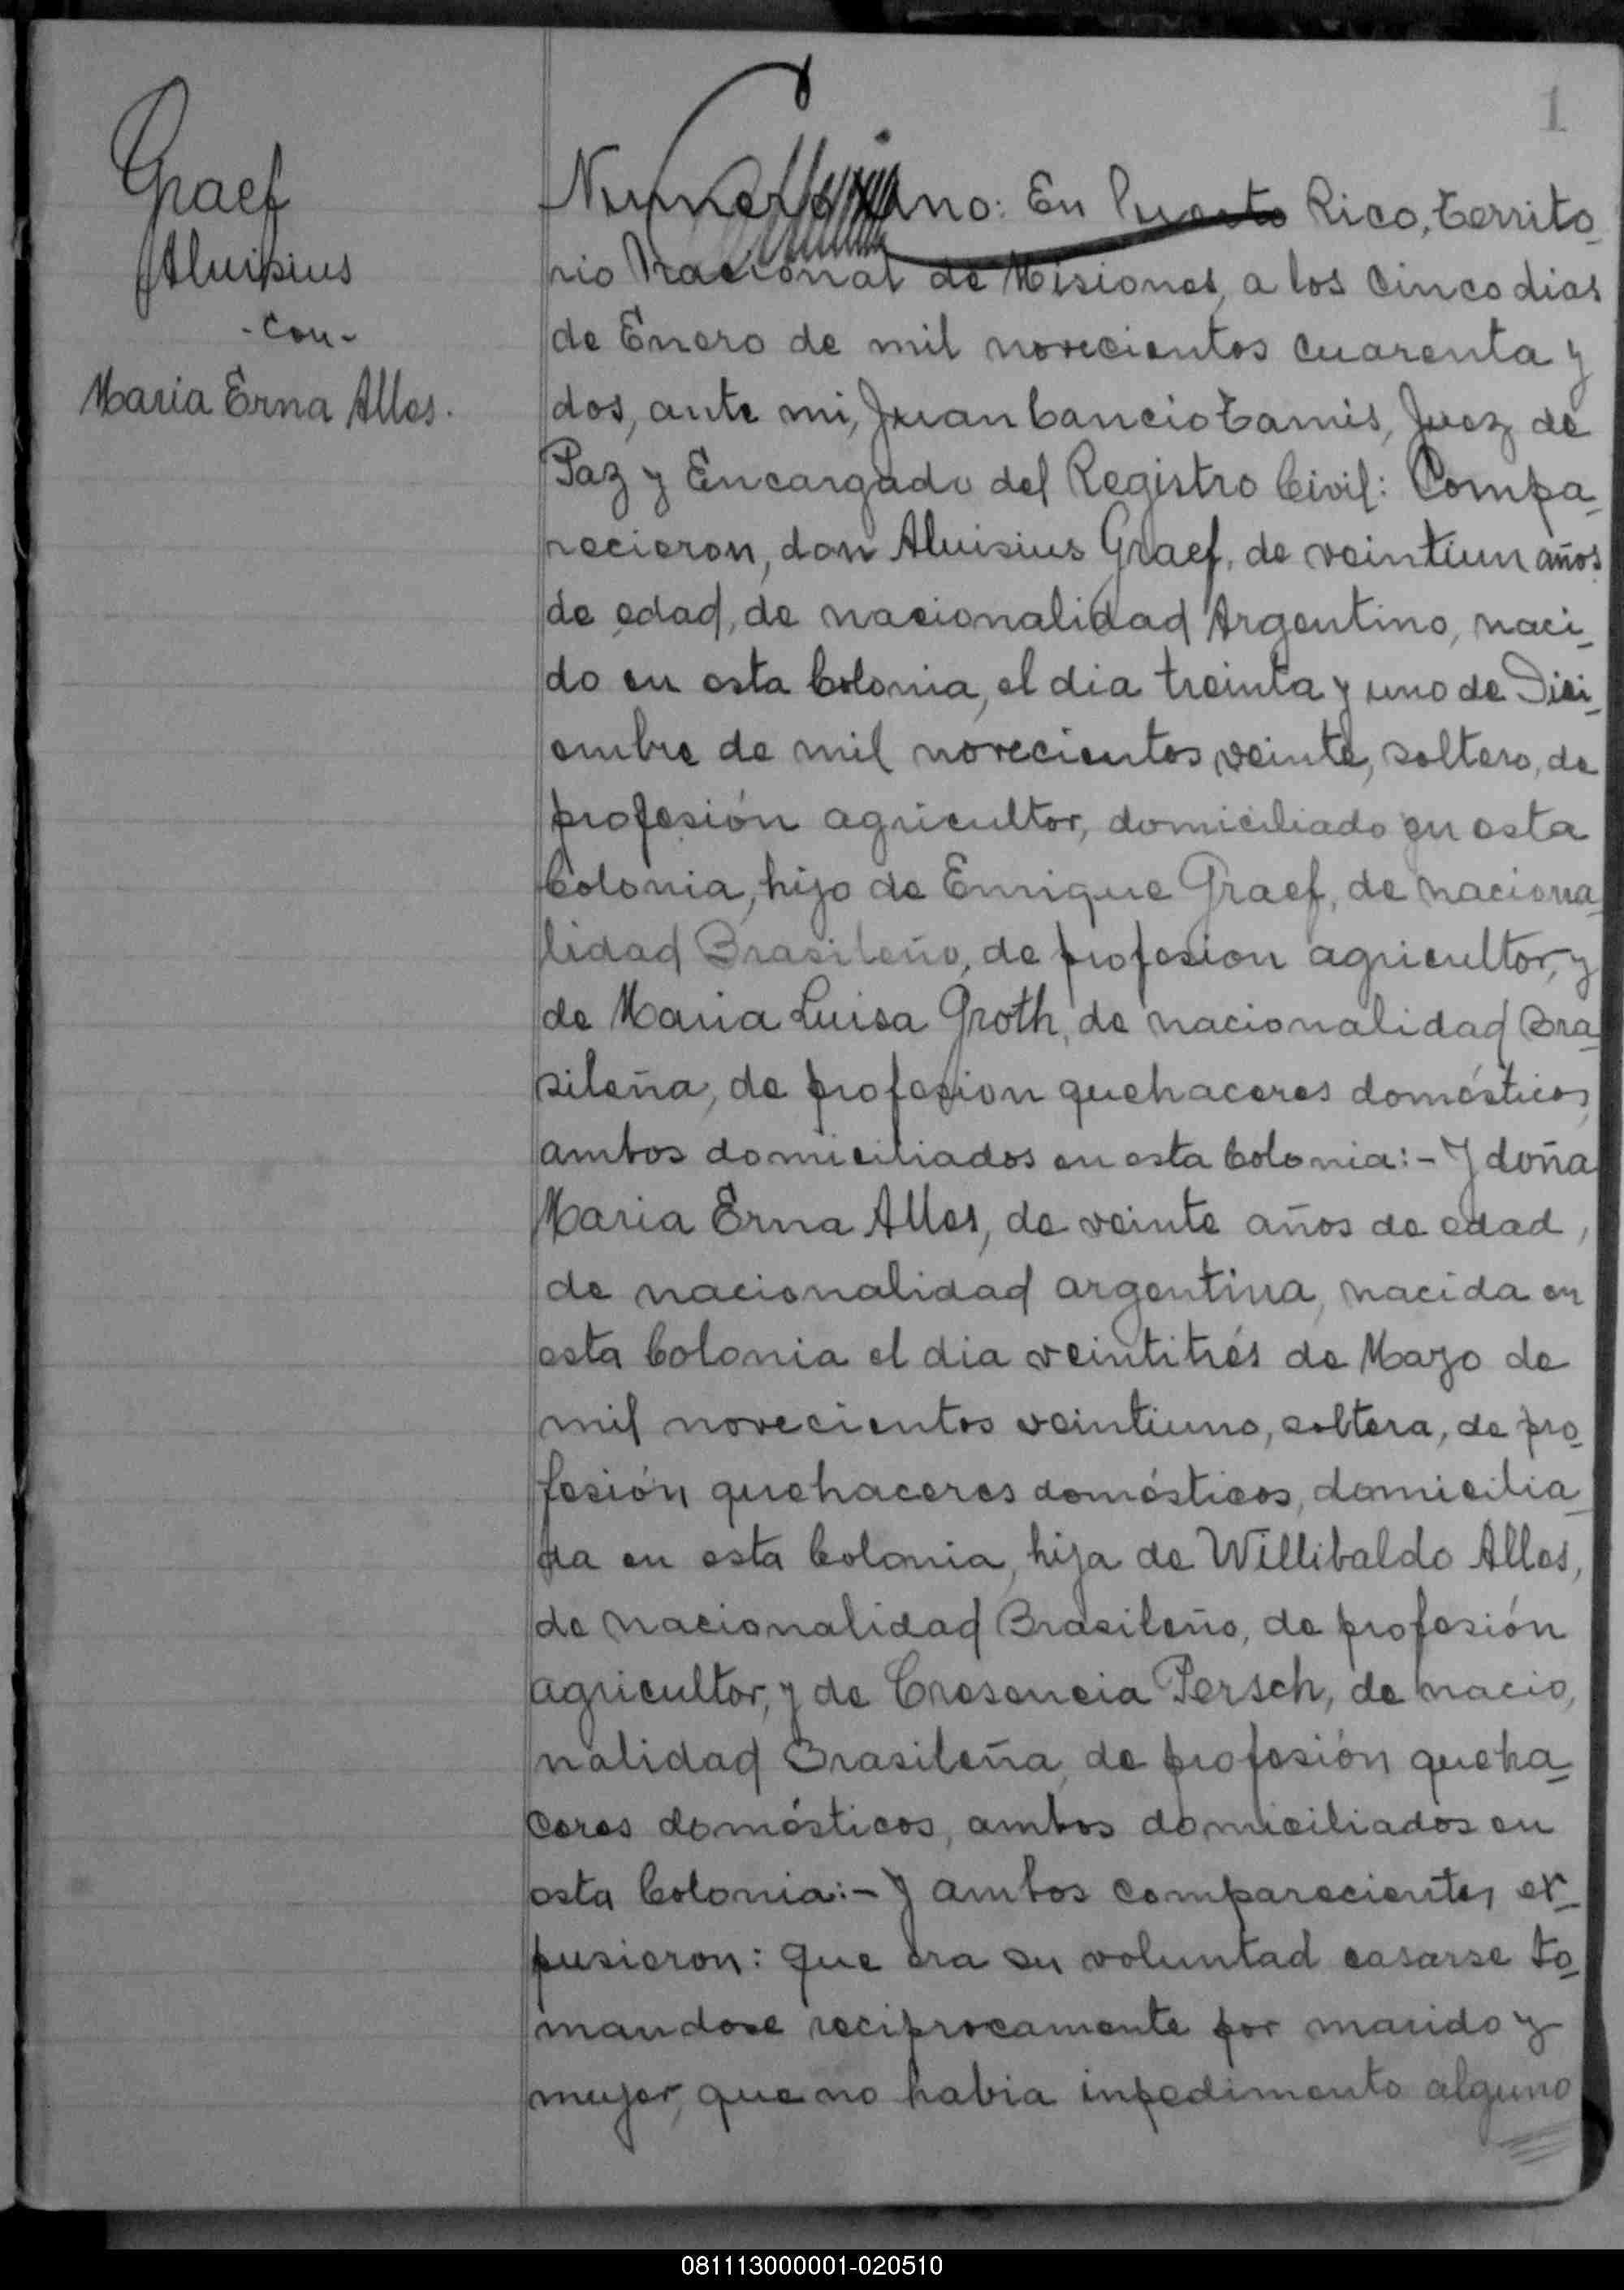 1
Graef
Aluisius
- con -
Maria Erna Alles.
Numero uno: En Puerto Rico, territo-
rio Nacional de Misiones, a los cinco dias
de Enero de mil novecientos cuarenta y
dos, ante mi, Juan Cancio Tamis, Juez de
Paz y Encargado del Registro Civil: Compa-
recieron, don Aluisius Graef, de veintiun años
de edad, de nacionalidad Argentino, naci-
do en esta Colonia, el dia treinta y uno de Dici-
embre de mil novecientos veinte, soltero, de
profesión agricultor, domiciliado en esta
Colonia, hijo de Enrique Graef, de naciona-
lidad Brasileño, de profesion agricultor, y
de Maria Luisa Groth, de nacionalidad Bra-
sileña, de profesion quehaceres domésticos,
ambos domiciliados en esta Colonia:- Y doña
Maria Erna Alles, de veinte años de edad,
de nacionalidad argentina, nacida en
esta Colonia el dia veintitrés de Mayo de
mil novecientos veintiuno, soltera, de pro-
fesión quehaceres domésticos, domicilia-
da en esta Colonia, hija de Willibaldo Alles,
de nacionalidad Brasileño, de profesión
agricultor, y de Cresencia Persch, de nacio-
nalidad Brasileña, de profesión queha-
ceres domésticos, ambos domiciliados en
esta Colonia:- Y ambos comparecientes ex-
pusieron: que era su voluntad casarse to-
mandose reciprocamente por marido y
mujer, que no habia inpedimento alguno
081113000001-020510